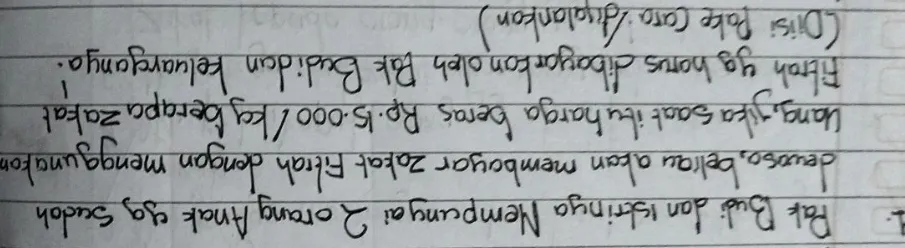 1. Pak Budi dan istrinya Mempunyai 2 orang Anak yg sudah
dewasa, beliau akan membayar zakat Fitrah dengan menggunakan
Uang, jika saat itu harga beras Rp. 15.000 / kg berapa zakat
Fitrah yg harus dibayarkan oleh Pak Budi dan keluarganya.
(Diisi Pake Cara / dijalankan)